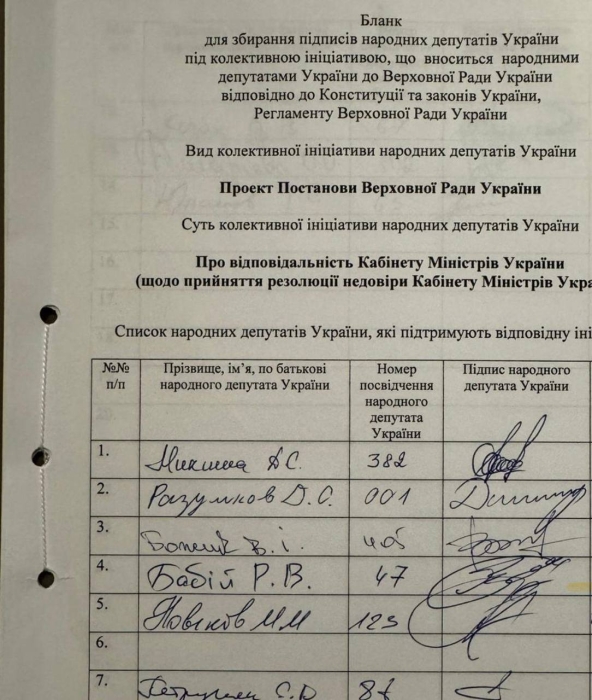 Бланк
для збирання підписів народних депутатів України
під колективною ініціативою, що вноситься народними
депутатами України до Верховної Ради України
відповідно до Конституції та законів України,
Регламенту Верховної Ради України
Вид колективної ініціативи народних депутатів України
Проект Постанови Верховної Ради України
Суть колективної ініціативи народних депутатів України
Про відповідальність Кабінету Міністрів України
(щодо прийняття резолюції недовіри Кабінету Міністрів Укра
Список народних депутатів України, які підтримують відповідну іні
№№ п/п
Прізвище, ім'я, по батькові народного депутата України
Номер посвідчення народного депутата України
Підпис народного депутата України
1. Микиша Д.С. 382
2. Разумков Д.О. 001
3. В. І. 405
4. Бабій Р.В. 47
5. Новіков М М 123
6.
7.